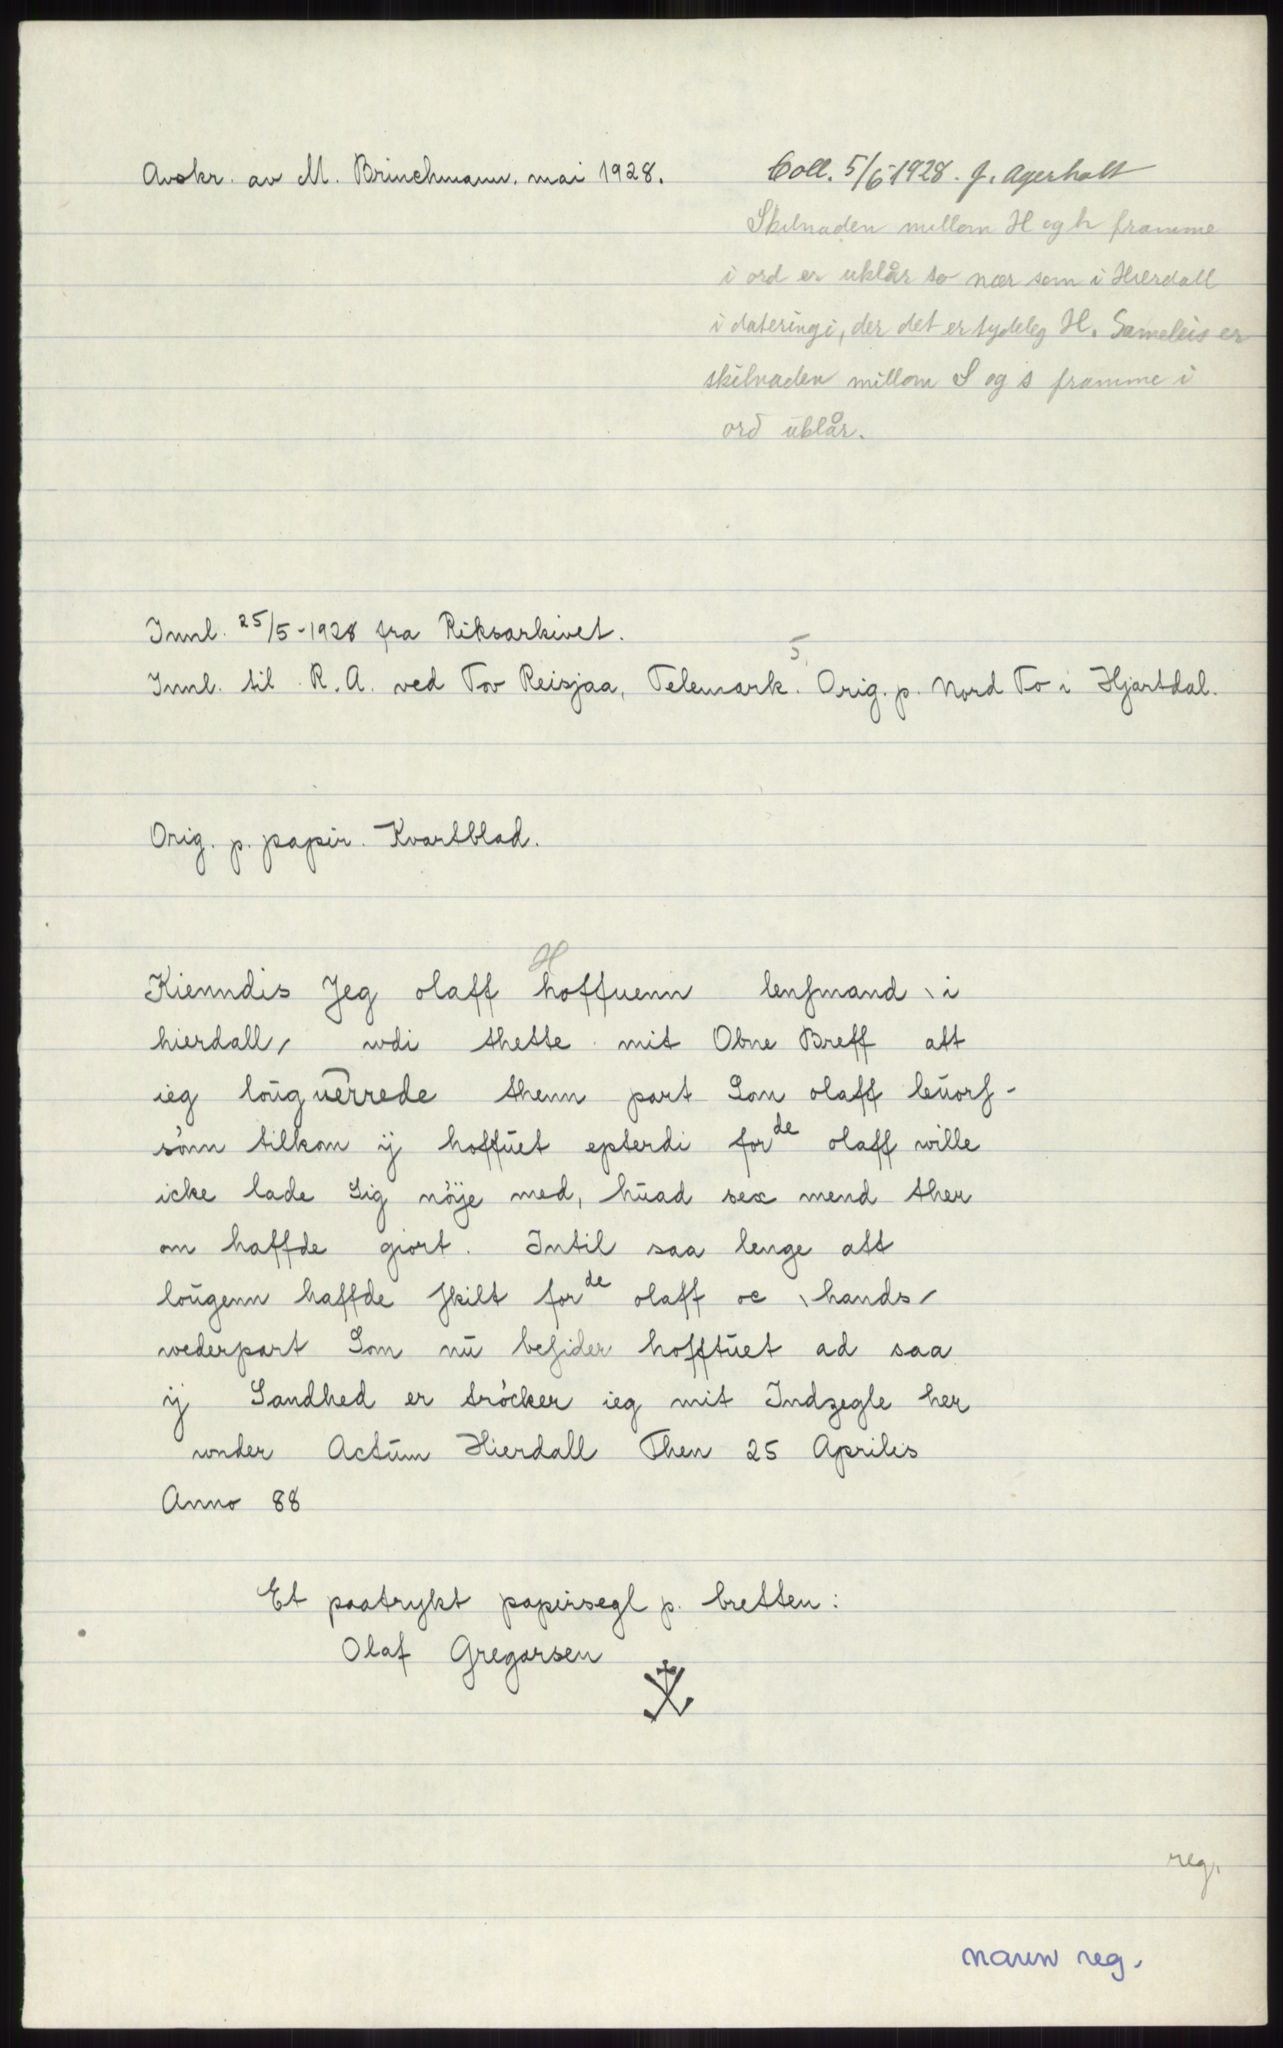 Avskr. av M. Brinchmann. mai 1928.
Coll. 5/6-1928. J. Agerholt
Skilnaden millom H og h framme
i ord er uklår so nær som i Hierdall
i dateringi, der det er tydeleg H. Sameleis er
skilnaden millom S og s framme i
ord uklår.
Innl. 25/5-1928 fra Riksarkivet.
5.
Innl. til R. A. ved Tov Reisjaa, Telemark. Orig. p. Nord To i Hjartdal.
Orig. p. papir. Kvartblad.
H
Kienndis Jeg olaff hoffuenn lenſmand \ i
hierdall / wdi thette mit Obne Breff att
ieg loŭguerrede thenn part Som olaff leŭorſ-
sónn tilkom ij hoffŭet epterdi forde olaff wille
icke lade Sig nóije med, hŭad sex mend ther
om haffde giort. Intil saa lenge att
loŭgenn haffde ſkilt forde olaff oc \ hands /
wederpart Som nŭ beſider hofftŭet ad saa
ij Sandhed er trócker ieg mit Indzegle her
wnder Actŭm Hierdall Then 25 Aprilis
Anno 88
Et paatrykt papirsegl p. bretten:
Olaf Gregarsen
reg.
navn reg.